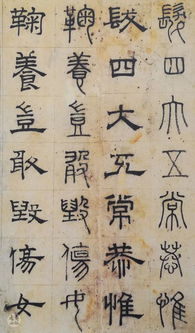 髮四大五常恭惟
髮四大五常恭惟
鞠養豈敢毀傷女
鞠養豈敢毀傷女